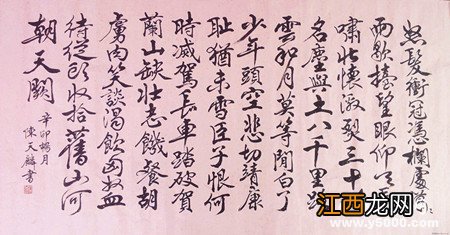 怒髮衝冠憑欄處瀟瀟
雨歇擡望眼仰天長
嘯壯懷激烈三十功
名塵與土八千里路
雲和月莫等閒白了
少年頭空悲切靖康
耻猶未雪臣子恨何
時滅駕長車踏破賀
蘭山缺壯志饑餐胡
虜肉笑談渴飲匈奴血
待從頭收拾舊山河
朝天闕
辛卯暢月
陳天麟書
江西龙网
www.y5000.com